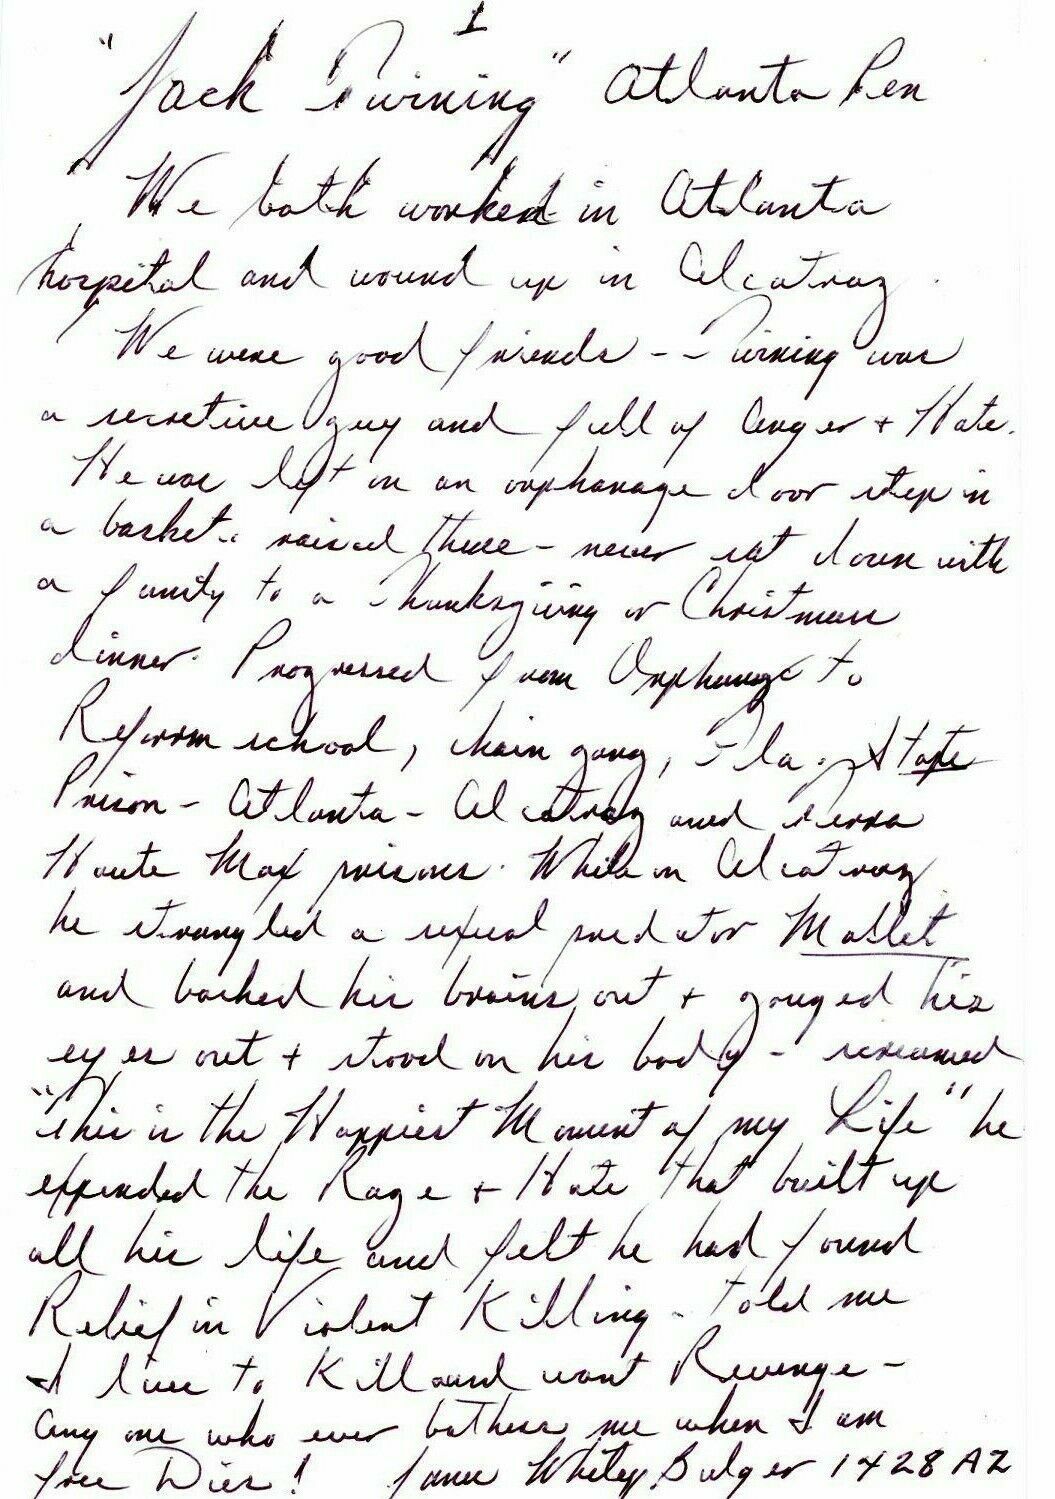 1
"Jack Twining" Atlanta Pen
We both worked in Atlanta
hospital and wound up in Alcatraz.
We were good friends - - Twining was
a secretive guy and full of Anger + Hate.
He was left on an orphanage door step in
a basket. raised there - never sat down with
a family to a Thanksgiving or Christmas
dinner. Progressed from Orphange to
Reform school, chain gang, Fla. State
Prison - Atlanta - Alcatraz and Terra
Haute Max prisons. While on Alcatraz
he strangled a sexual predator Mollet
and bashed his brains out + gouged his
eyes out + stood on his body - screamed
"This is the Happiest Moment of my Life" he
expended the Rage + Hate that built up
all his life and felt he had found
Relief in Violent Killing - told me
I live to Kill and want Revenge -
Any one who ever bothers me when I am
free Dies! James Whitey Bulger 1428 AZ